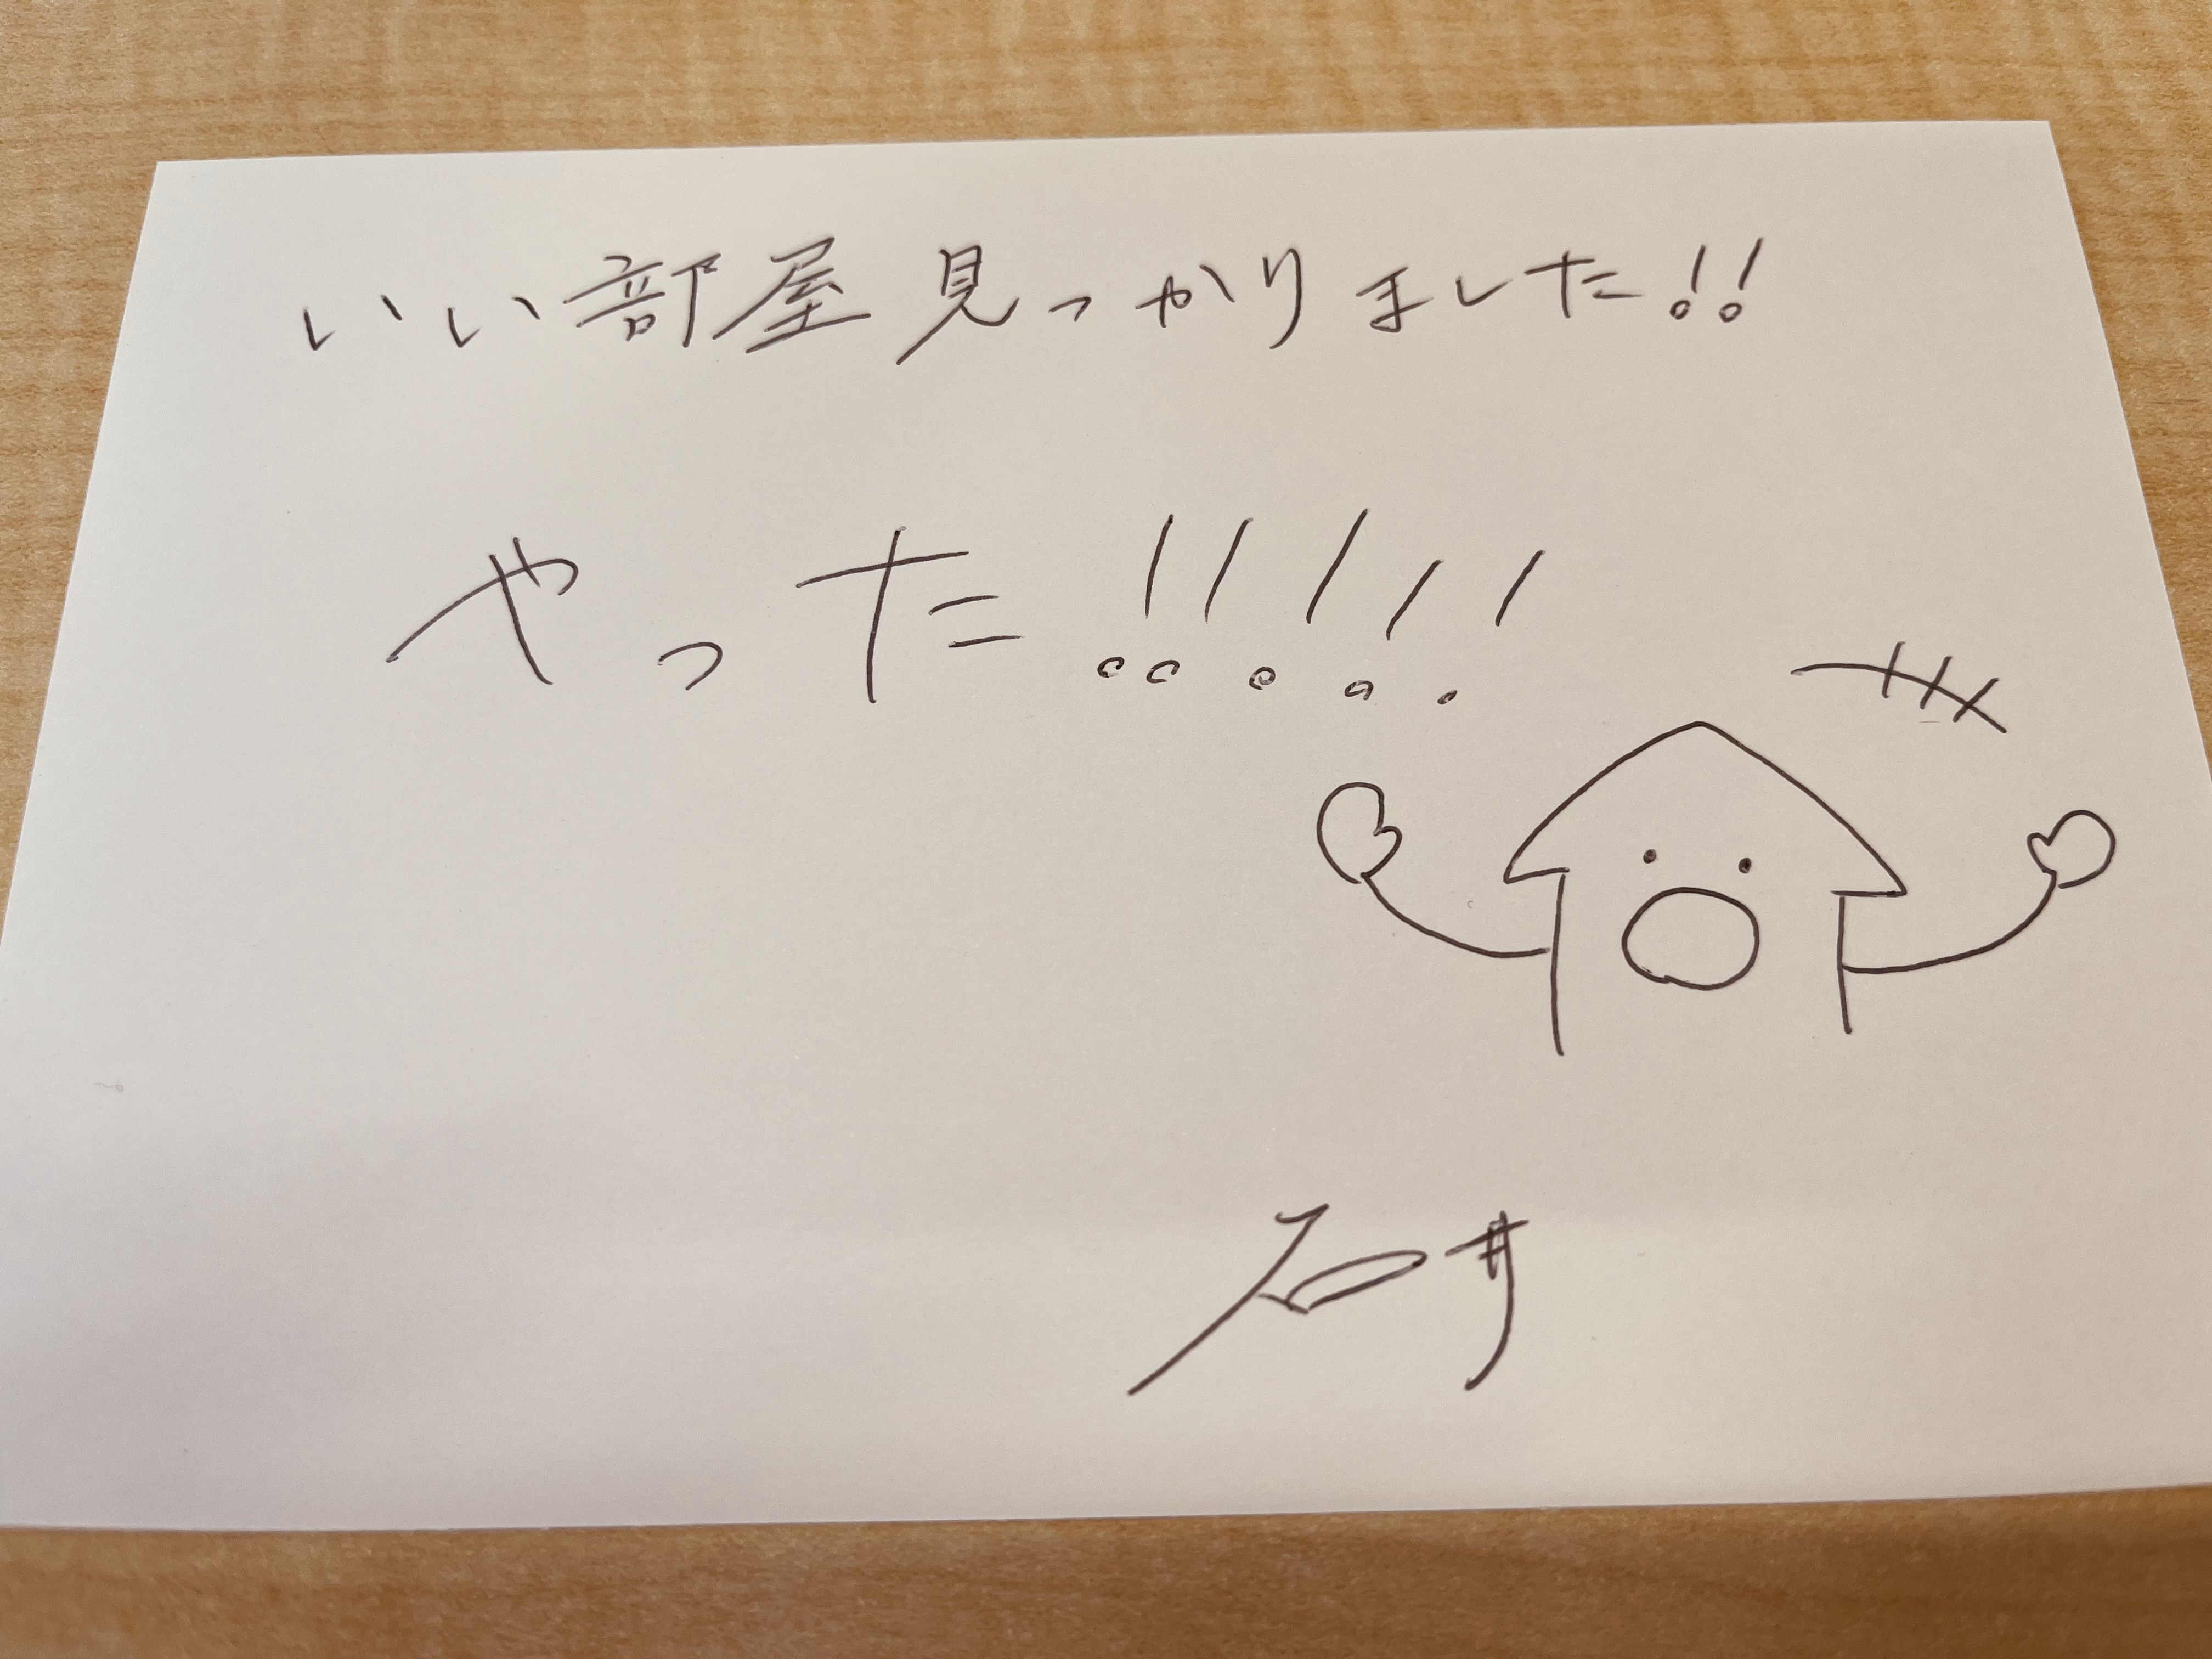 いい部屋見つかりました!!
やった!!!!!
石井